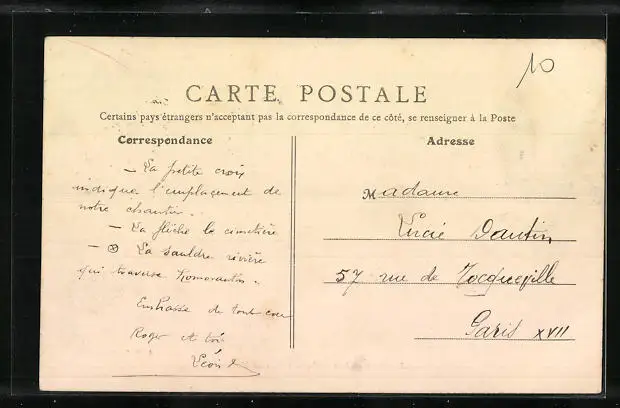 10
CARTE POSTALE
Certains pays étrangers n'acceptant pas la correspondance de ce côté, se renseigner à la Poste
Correspondance
- La petite croix
indique l'emplacement de
notre chantier.
- La flèche le cimetière
- ⊗ La Sauldre rivière
qui traverse Romorantin.
Embrasse de tout cœur
Roger et toi
Léon
Adresse
Madame
Lucie Dautin
57 rue de Tocqueville
Paris XVII